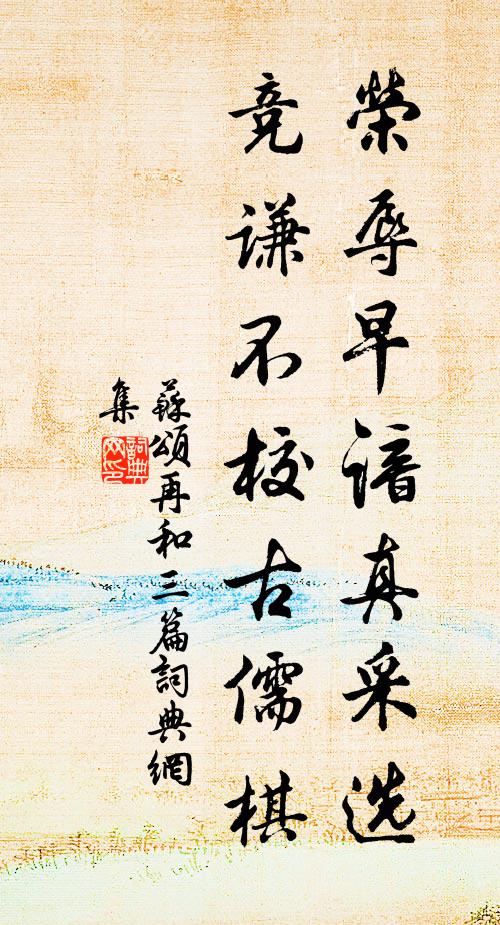 榮辱早諳真采选
竞谦不校古儒棋
蘇頌再和三篇詞典網
集
詞典